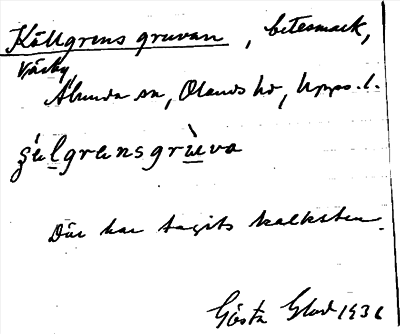 Källgrens gruvan, betesmark,
Väsby
Ålunda sn, Olands hd, Upps. l.
g̀älgrensgrùva
Där har tagits kalksten.
Gösta Glad 1936